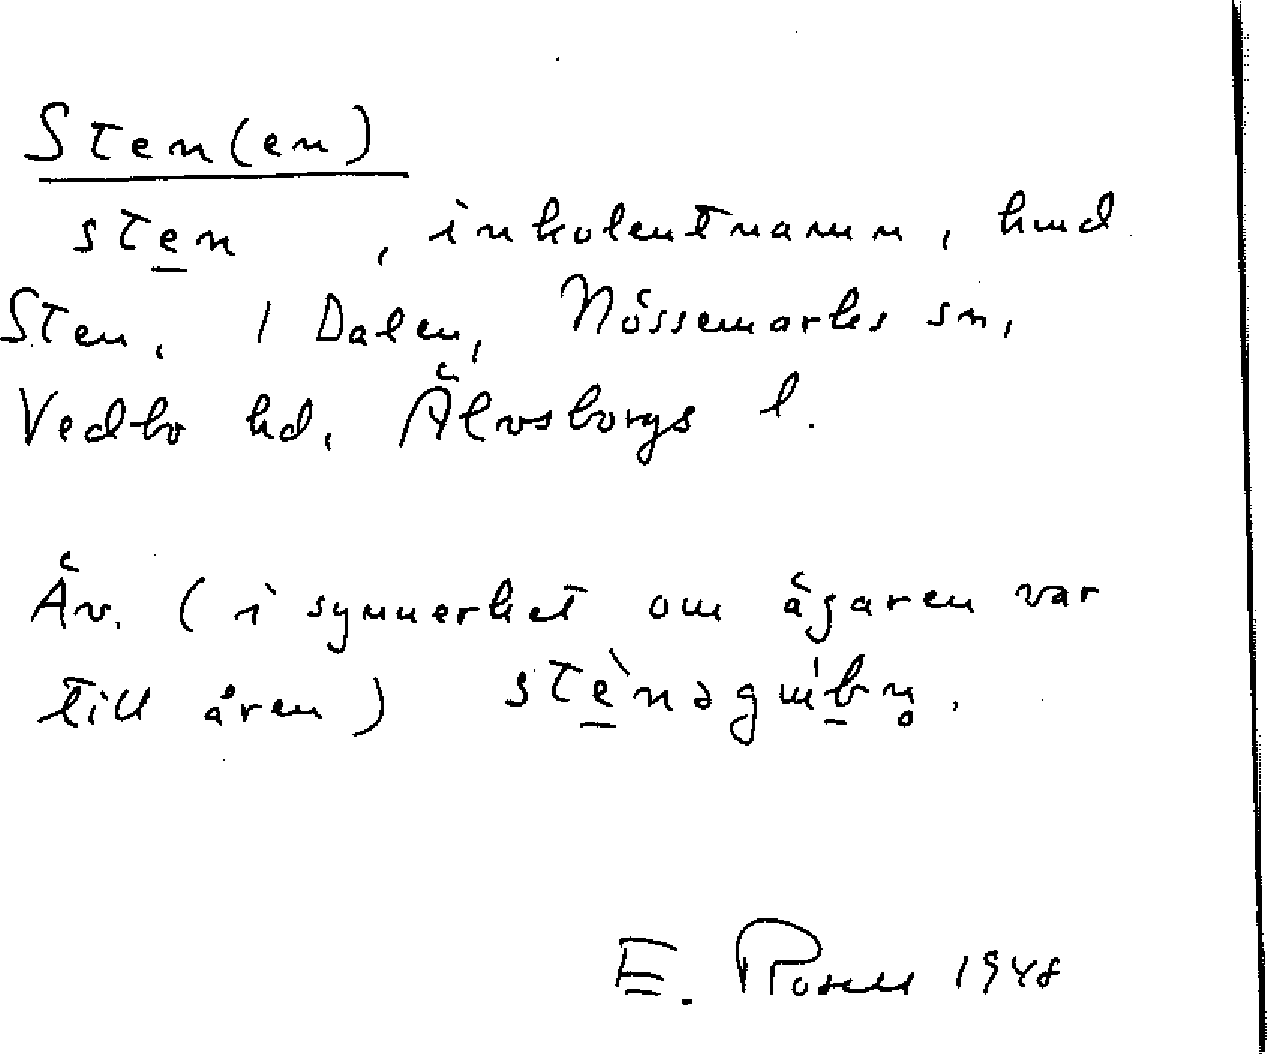 Sten(en)
sten , inkolentnamn, hmd
Sten, 1 Dalen, Nössemarks sn,
Vedbo hd, Älvsborgs l.
Äv. (i synnerhet om ägaren var
till åren) stènəgúbn̥.
E. Rosell 1948